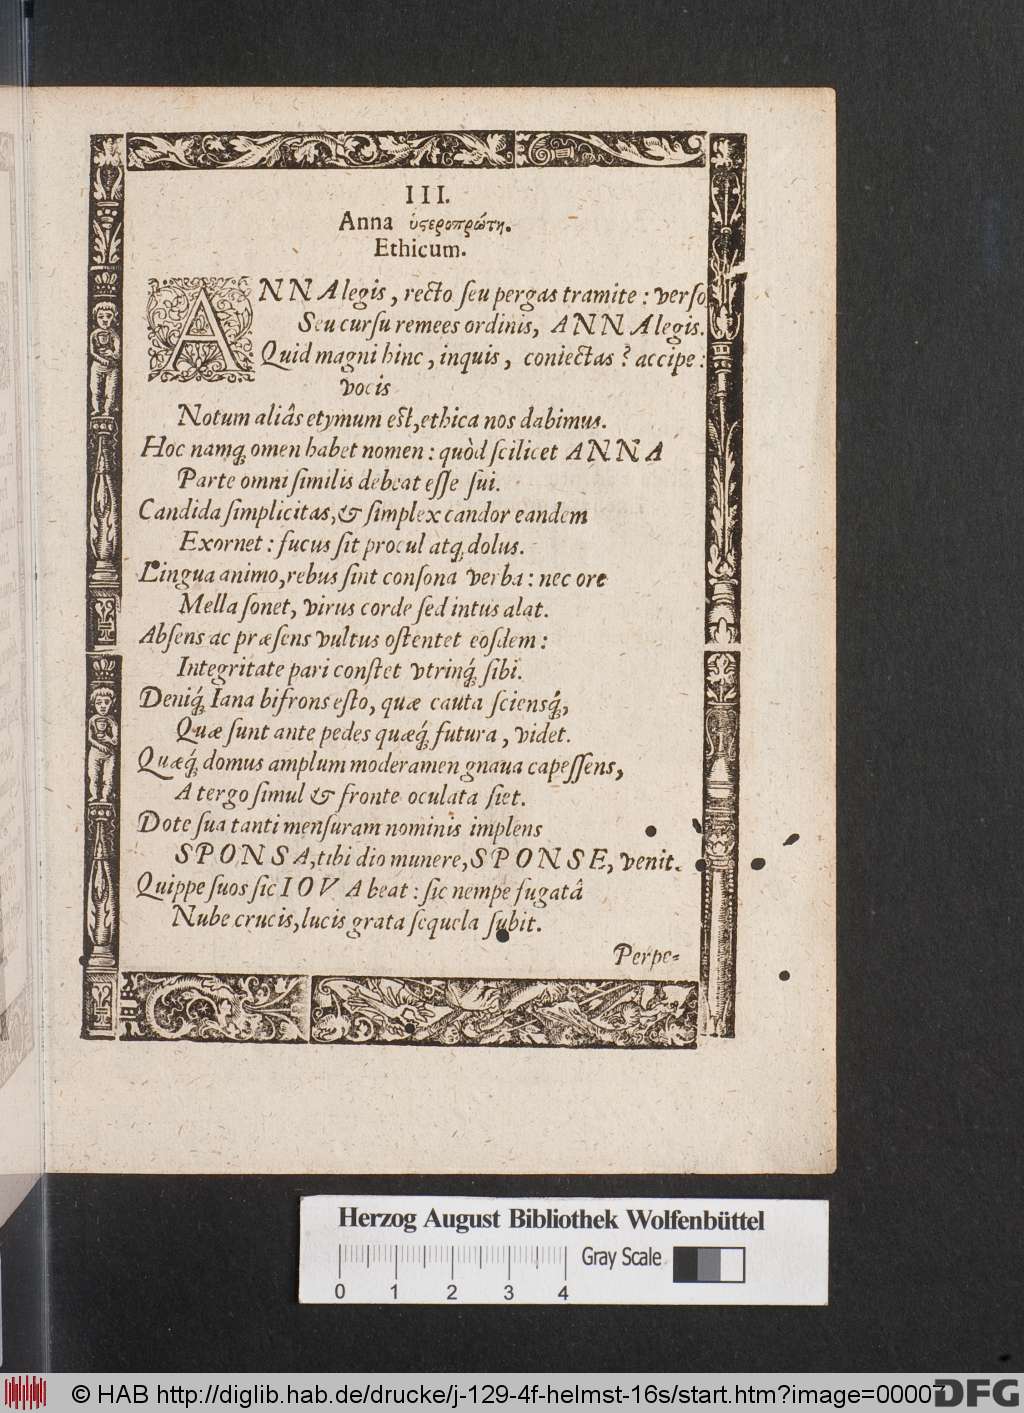 III.
Anna ὑϛεροπρώτη.
Ethicum.
ANNA legis, recto ſeu pergas tramite: verſo
Seu curſu remees ordinis, ANNA legis.
Quid magni hinc, inquis, coniectas? accipe:
vocis
Notum aliâs etymum eſt, ethica nos dabimus.
Hoc namq́; omen habet nomen: quòd ſcilicet ANNA
Parte omni ſimilis debeat eſſe ſui.
Candida ſimplicitas, & ſimplex candor eandem
Exornet: fucus ſit procul atq́; dolus.
Lingua animo, rebus ſint conſona verba: nec ore
Mella ſonet, virus corde ſed intus alat.
Abſens ac præſens vultus oſtentet eoſdem:
Integritate pari conſtet vtrinq́; ſibi.
Deniq́; Iana bifrons eſto, quæ cauta ſciensq́;,
Quæ ſunt ante pedes quæq́; futura, videt.
Quæq́; domus amplum moderamen gnaua capeſſens,
A tergo ſimul & fronte oculata ſiet.
Dote ſua tanti menſuram nominis implens
SPONSA, tibi dio munere, SPONSE, venit.
Quippe ſuos ſic IOVA beat: ſic nempe fugatâ
Nube crucis, lucis grata ſequela ſubit.
Perpe-
Herzog August Bibliothek Wolfenbüttel
Gray Scale
0 1 2 3 4
© HAB http://diglib.hab.de/drucke/j-129-4f-helmst-16s/start.htm?image=00007
DFG